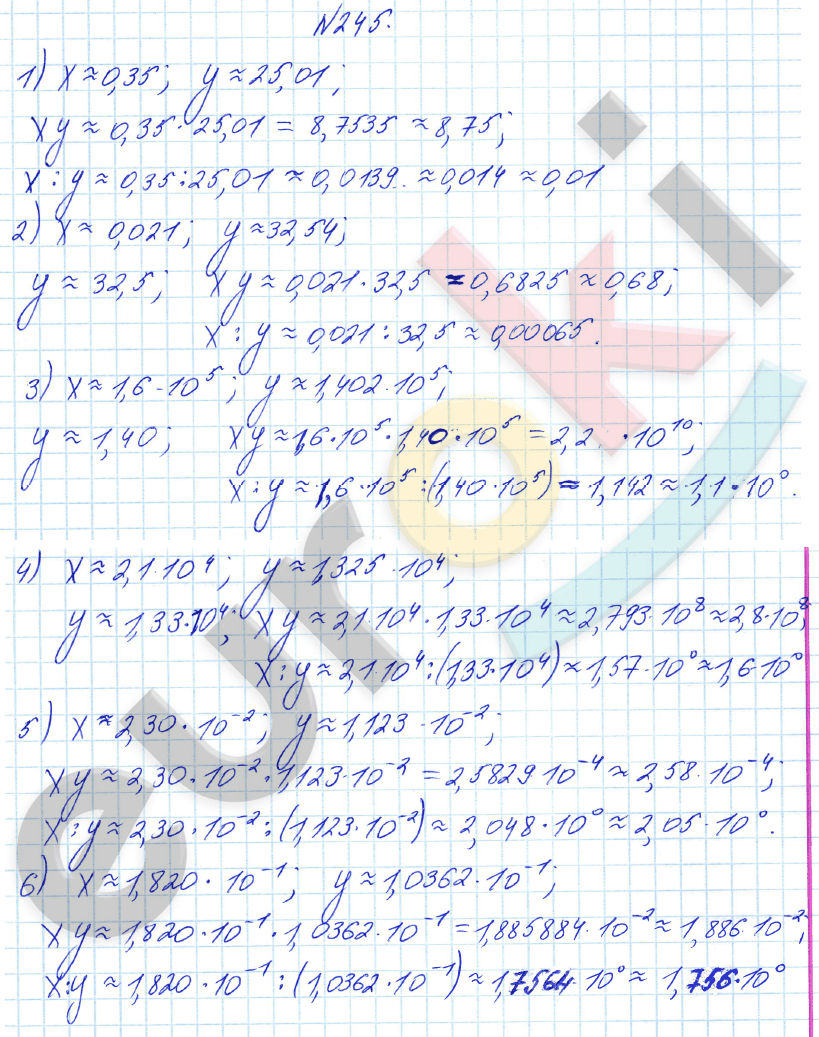 N245.
1) x≈0,35; y≈25,01;
xy≈0,35·25,01 = 8,7535 ≈8,75;
x:y≈0,35:25,01 ≈0,0139.. ≈0,014 ≈0,01
2) x≈0,021; y≈32,54;
y≈32,5; xy≈0,021·32,5 =0,6825 ≈0,68;
x:y≈0,021:32,5≈0,00065.
3) x≈1,6·10⁵; y≈1,402·10⁵;
y≈1,40; xy≈1,6·10⁵·1,40·10⁵ =2,2 ·10¹⁰;
x:y≈1,6·10⁵:(1,40·10⁵)=1,142≈1,1·10⁰.
4) x≈2,1·10⁴; y≈1,325·10⁴;
y≈1,33·10⁴; xy≈2,1·10⁴·1,33·10⁴≈2,793·10⁸≈2,8·10⁸;
x:y≈2,1·10⁴:(1,33·10⁴)≈1,57·10⁰≈1,6·10⁰
5) x≈2,30·10⁻²; y≈1,123·10⁻²;
xy≈2,30·10⁻²·1,123·10⁻² =2,5829 10⁻⁴≈2,58·10⁻⁴;
x:y≈2,30·10⁻²:(1,123·10⁻²)≈2,048·10⁰≈2,05·10⁰.
6) x≈1,820·10⁻¹; y≈1,0362·10⁻¹;
xy≈1,820·10⁻¹·1,0362·10⁻¹ =1,885884·10⁻²≈1,886·10⁻²;
x:y≈1,820·10⁻¹:(1,0362·10⁻¹)≈1,7564·10⁰≈1,756·10⁰
euroki